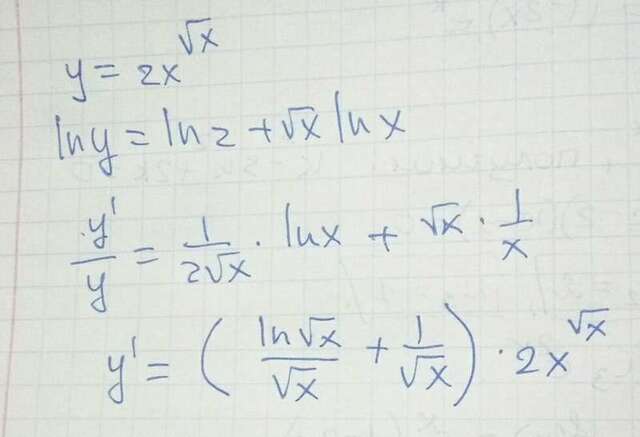 y = 2x^√x
ln y = ln 2 + √x ln x
y'/y = 1/(2√x) · ln x + √x · 1/x
y' = ( ln√x/√x + 1/√x ) · 2x^√x